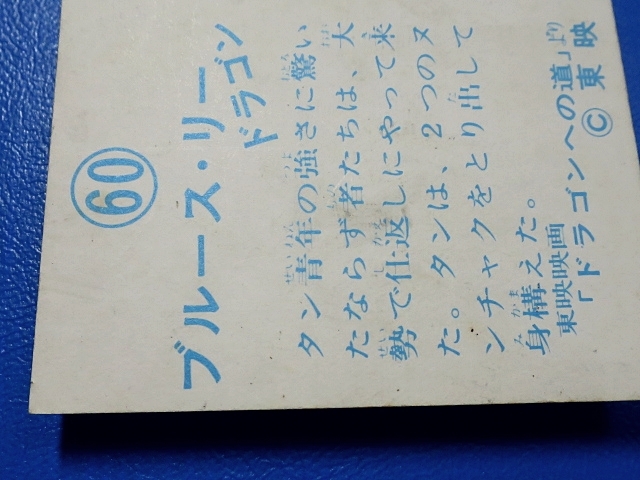 60
ブルース・リー
ドラゴン
タン青年の強さに驚い
たならず者たちは、大
勢で仕返しにやって来
た。タンは、2つのヌ
ンチャクをとり出して
身構えた。
東映映画
「ドラゴンへの道」より
©東映